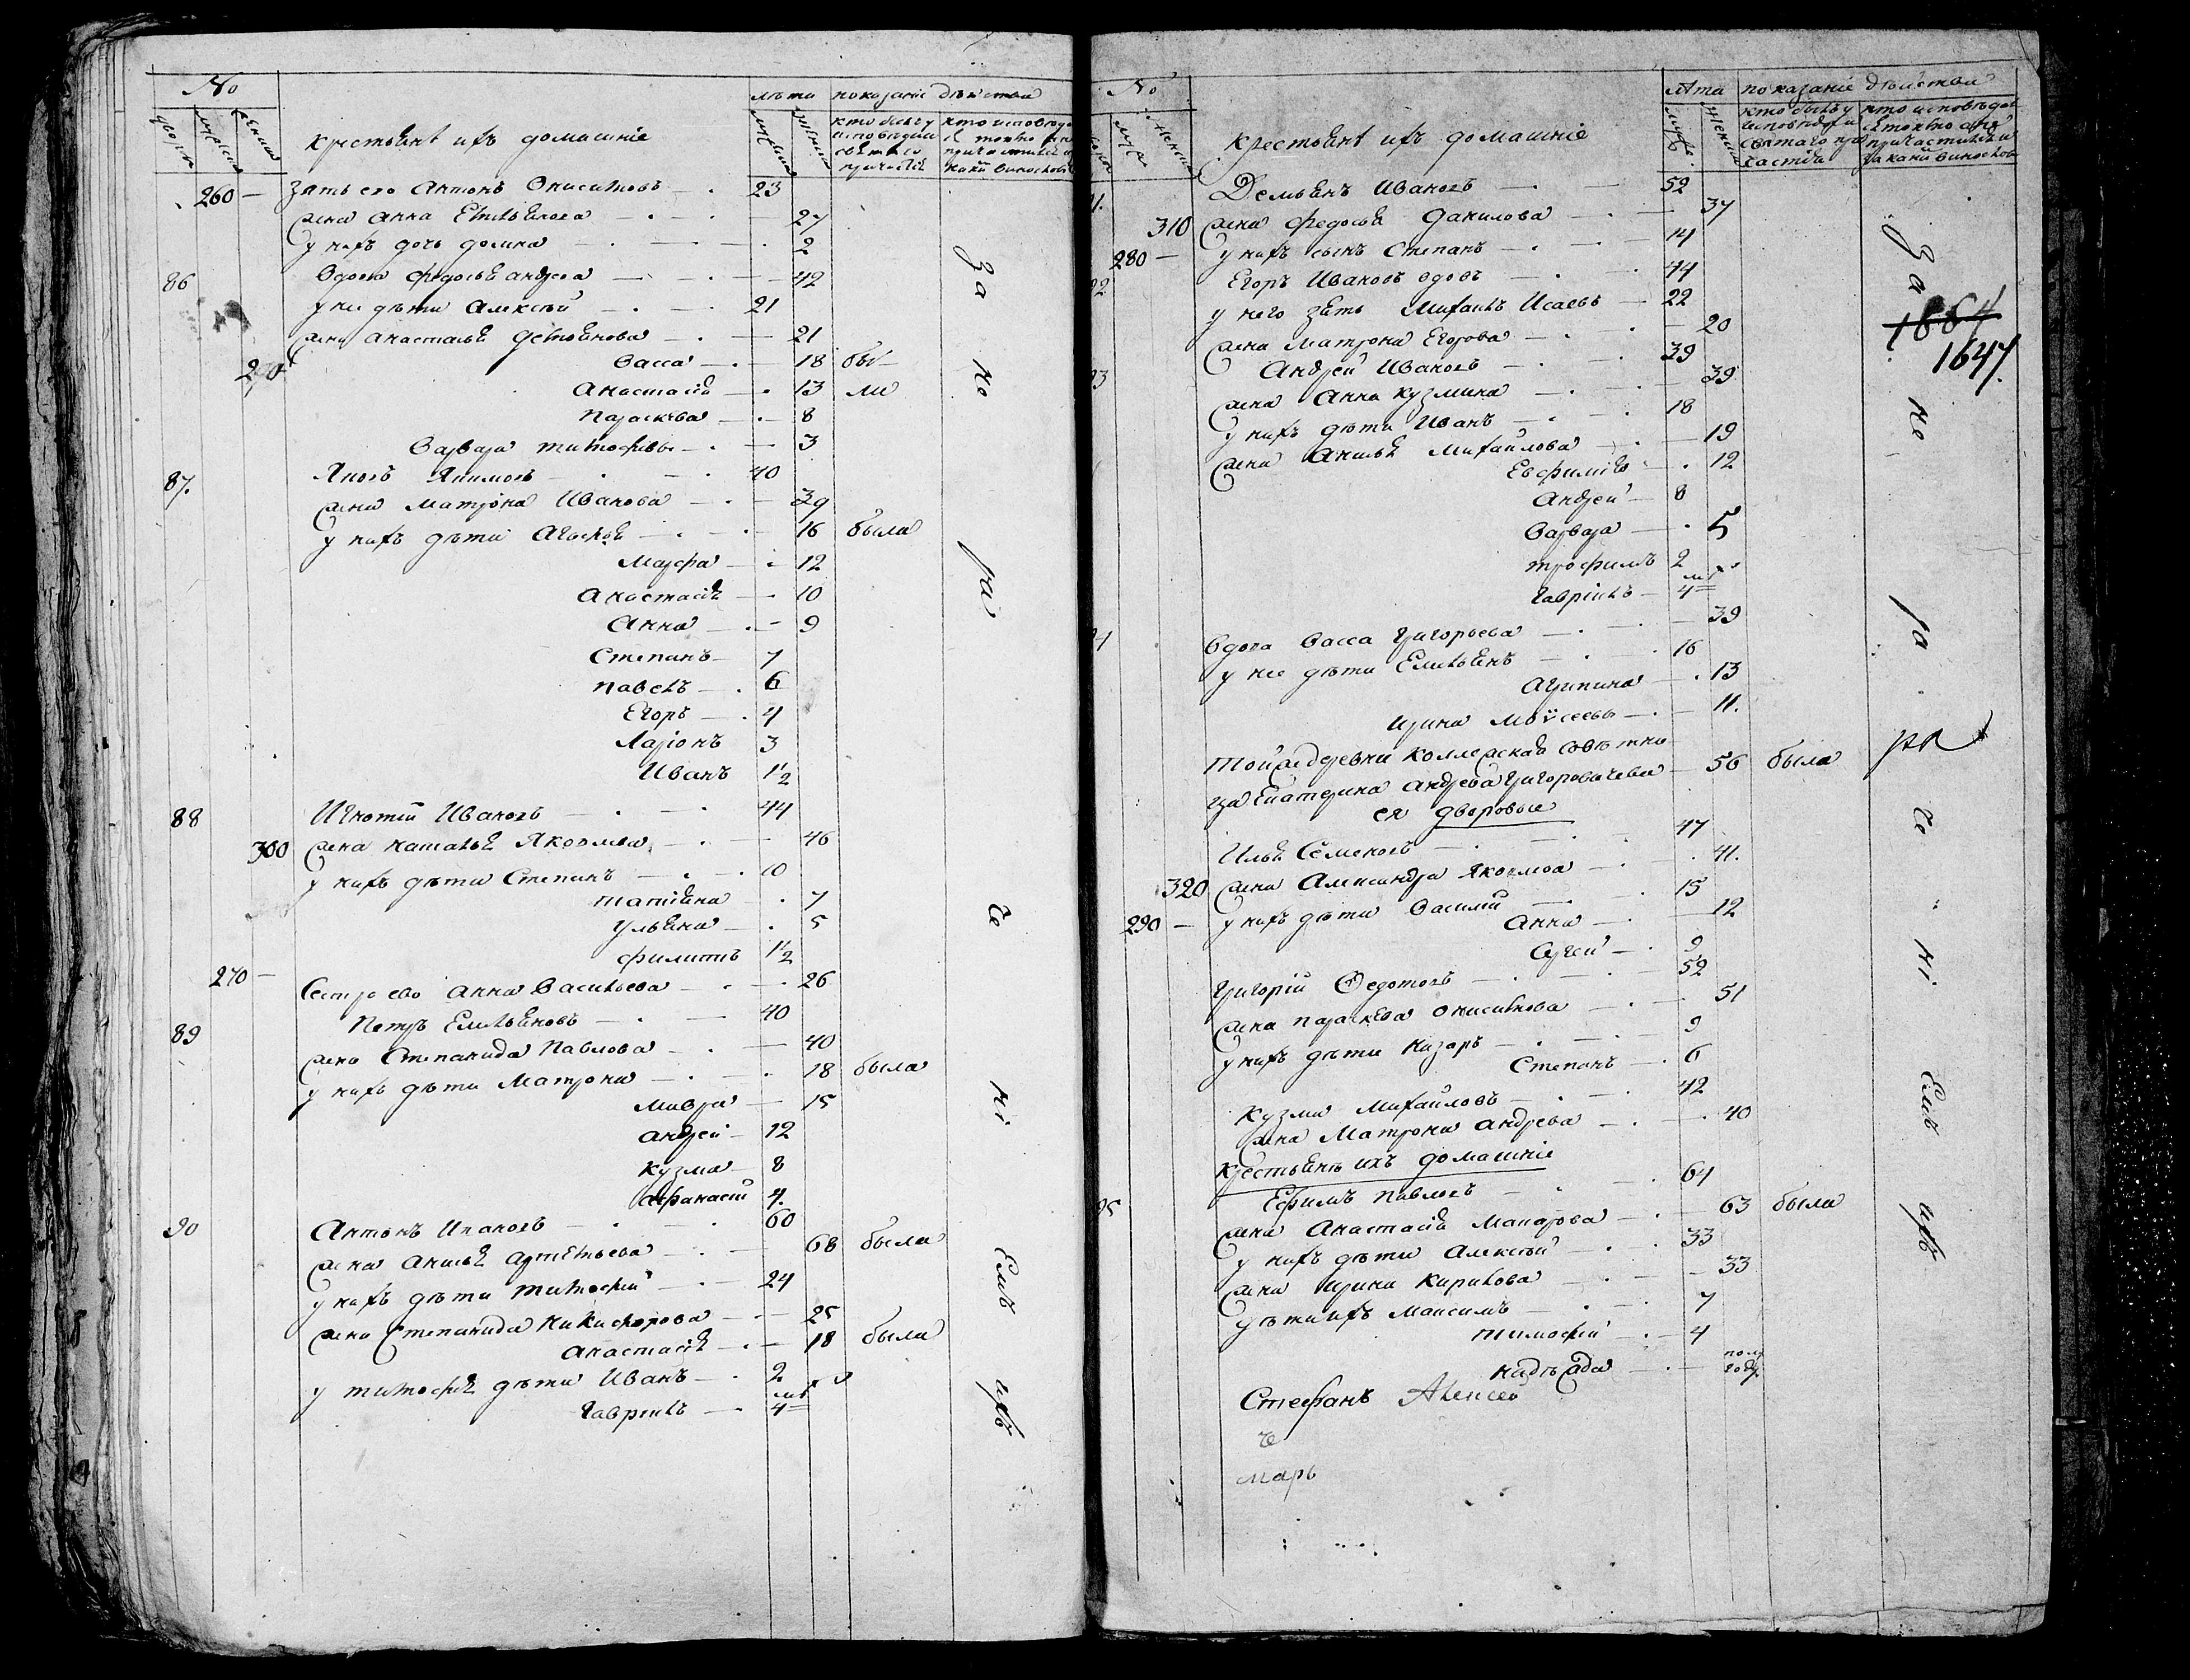 No
лѣта показаніе действа
дворы мужескъ женска
крестьянѣ ихъ домашніе
мужескъ женска
кто былъ у исповѣди и святаго причастія
260 — Зять его Антонъ Онисимовъ — 23
жена Анна Емельянова — 27
у нихъ дочь Домна — 2
86 вдова Федосья Андреева — 42
у нее дѣти Алексѣй — 21
жена Анастасья — 21
Васса — 18 бы
Анастасія — 13 ли
Параскева — 8
Варвара Тимофѣевы — 3
87. Яковъ Якимовъ 40
жена Матрона Иванова — 39
у нихъ дѣти — 16 была
Марфа — 12
Анастасія — 10
Анна — 9
Степанъ — 7
Павелъ — 6
Егоръ — 4
Ларіонъ 3
Иванъ 1½
88 Игнатій Ивановъ — 44
300 жена Наталья Яковлева — 46
у нихъ дѣти Степанъ — 10
Татіяна — 7
Ульяна — 5
Филиппъ 1½
270 — Сестра ево Анна Васильева — 26
89 Петръ Емельяновъ — 40
жена Степанида Павлова — 40
у нихъ дѣти Матрона — 18 была
Мавра — 15
Андрей — 12
Кузма — 8
Афанасій 4.
90 Антонъ Ивановъ — 60
жена Анисья Артемьева — 68 была
у нихъ дѣти Тимофей — 24
жена Степанида Никифорова — 25
Анастасія — 18 была
у Тимофея дѣти Иванъ — 2
Гавріилъ — 4 м
За не ра че ні Емъ ихъ
No
лѣта показаніе дѣйства
крестьянѣ ихъ домашніе
кто былъ у исповеди и святаго причастія
Демьянъ Ивановъ — 52
310 жена Федосья Данилова — 37
280 — у нихъ сынъ Степанъ — 14
Егоръ Ивановъ вдовъ — 44
у него зять Михаилъ Исаевъ — 22
жена Матрона Егорова — 20
Андрей Ивановъ — 39
жена Анна Кузмина — 39
у нихъ дѣти Иванъ — 18
жена Анисья Михайлова — 19
Евфимія — 12
Андрей — 8
Варвара — 5
Трофимъ 2
Гавріилъ — 4 м
вдова Васса Григорьева — 39
у нее дѣти Емельянъ — 16
Агрипина — 13
Ирина Моѵсеевы — 11.
Той же деревни Коллежская Совѣтни
ца Екатерина Андреева Григоровичева — 56 была
ея дворовые
Илья Семеновъ — 47
320 жена Александра Яковлева — 41.
290 — у нихъ дѣти Василій — 15
Анна — 12
Сергей — 9
Григорій Федотовъ — 52
жена Параскева Онисимова — 51
у нихъ дѣти Назаръ — 9
Степанъ — 6
Кузма Михайловъ — 42
жена Матрона Андреева — 40
Крестьянѣ ихъ домашніе
95 Ефимъ Павловъ — 64
жена Анастасія Макарова — 63 была
у нихъ дѣти Алексѣй — 33
жена Ирина Кирилова — 33
дѣти ихъ Максимъ — 7
Тимофей — 4
Надежда — полгода
Стефанъ Алексей
че
марь
За
1864
1647.
не ра че ні Емъ ихъ